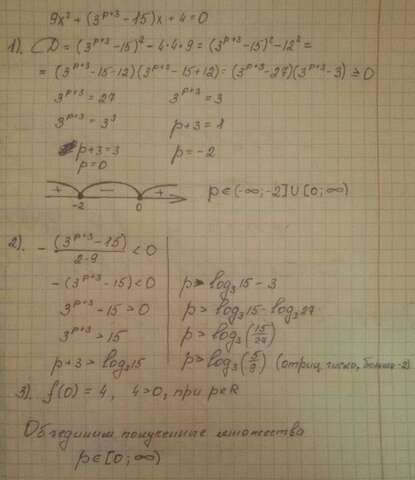 9x² + (3^{p+3} - 15)x + 4 = 0
1). D = (3^{p+3} - 15)² - 4·4·9 = (3^{p+3} - 15)² - 12² =
= (3^{p+3} - 15 - 12)(3^{p+3} - 15 + 12) = (3^{p+3} - 27)(3^{p+3} - 3) ≥ 0
3^{p+3} = 27   3^{p+3} = 3
3^{p+3} = 3³   p+3 = 1
p+3 = 3   p = -2
p = 0
+ - +   p∈(-∞; -2]∪[0; ∞)
-2   0
2). - (3^{p+3} - 15)/(2·9) < 0
-(3^{p+3} - 15) < 0
3^{p+3} - 15 > 0
3^{p+3} > 15
p+3 > log₃15
p > log₃15 - 3
p > log₃15 - log₃27
p > log₃(15/27)
p > log₃(5/9) (отриц. число, больше -2)
3). f(0) = 4, 4>0, при p∈R
Объединим полученные множества
p∈[0; ∞)